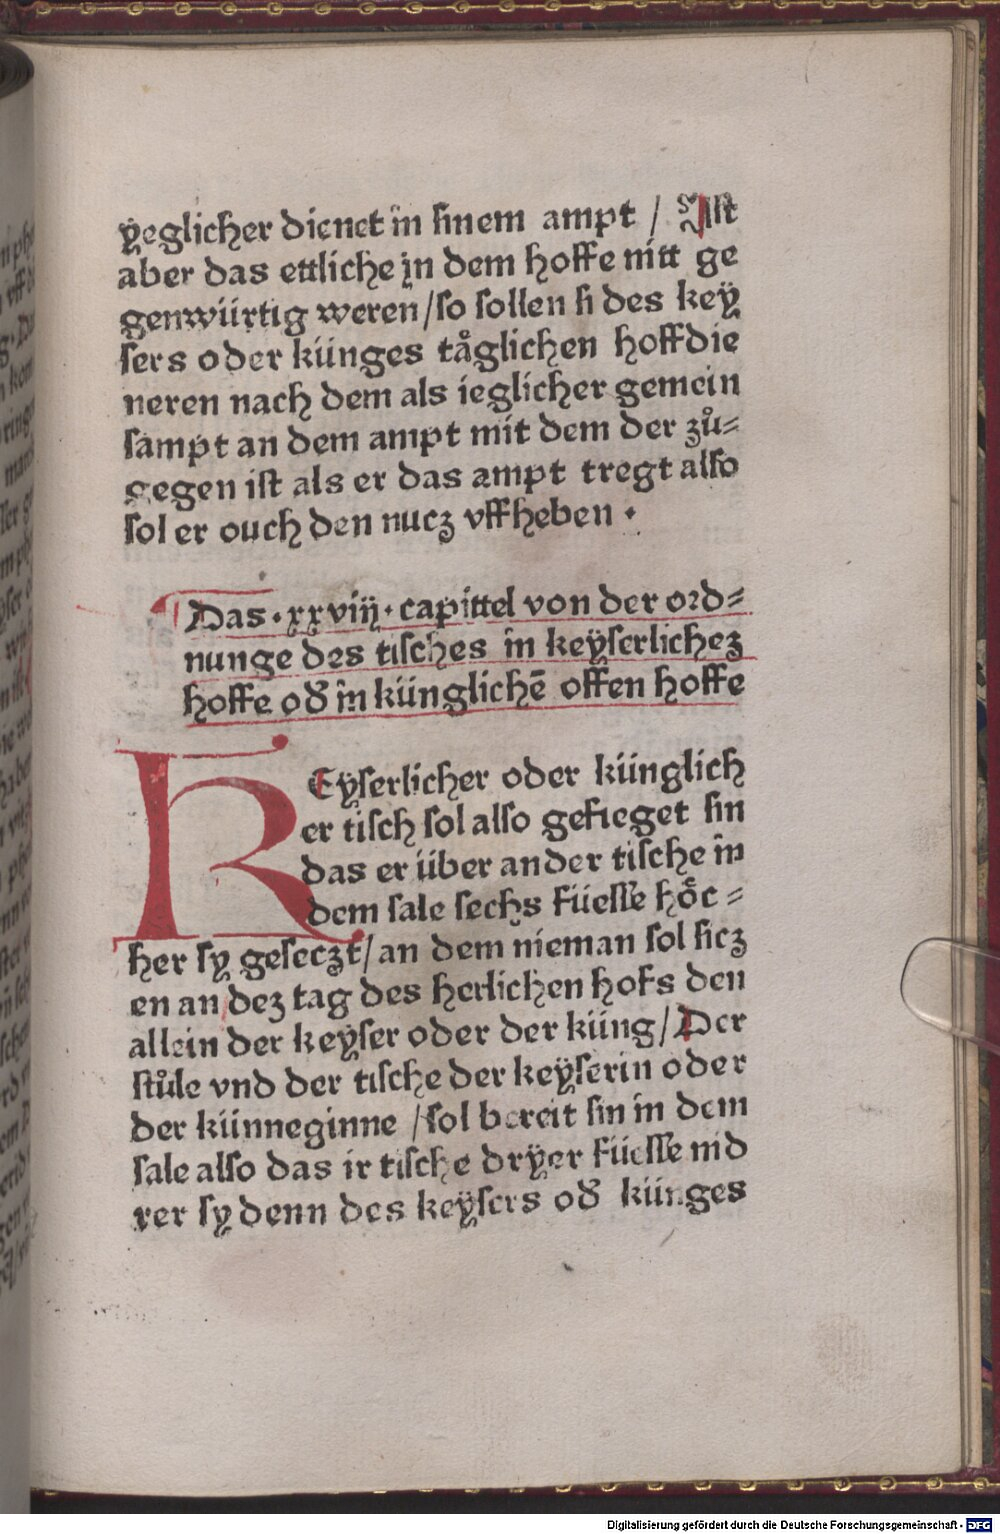 ÿeglicher dienet in sinem ampt / Ist
aber das ettliche jn dem hoffe nitt ge
genwüirtig weren / so sollen si des keÿ
sers oder küinges tåglichen hoffdie
neren nach dem als ieglicher gemein
sampt an dem ampt mit dem der zů⸗
gegen ist als er das ampt tregt also
sol er ouch den nucz vffheben ·
Das · xxviij · capittel von der ord⸗
nunge des tisches in keÿserlichez
hoffe od' in küinglichē offen hoffe
KEyserlicher oder küinglich
er tisch sol also gefieget sin
das er über ander tische in
dem sale sechs füesse hoͤc⸗
her sy geseczt / an dem nieman sol sicz
en an dez tag des herlichen hofs den
allein der keÿser oder der küing / Der
stůle vnd der tische der keÿserin oder
der küinneginne / sol bereit sin in dem
sale also das ir tische drÿer füesse nid
rer sy denn des keÿsers od' küinges
Digitalisierung gefördert durch die Deutsche Forschungsgemeinschaft - DFG